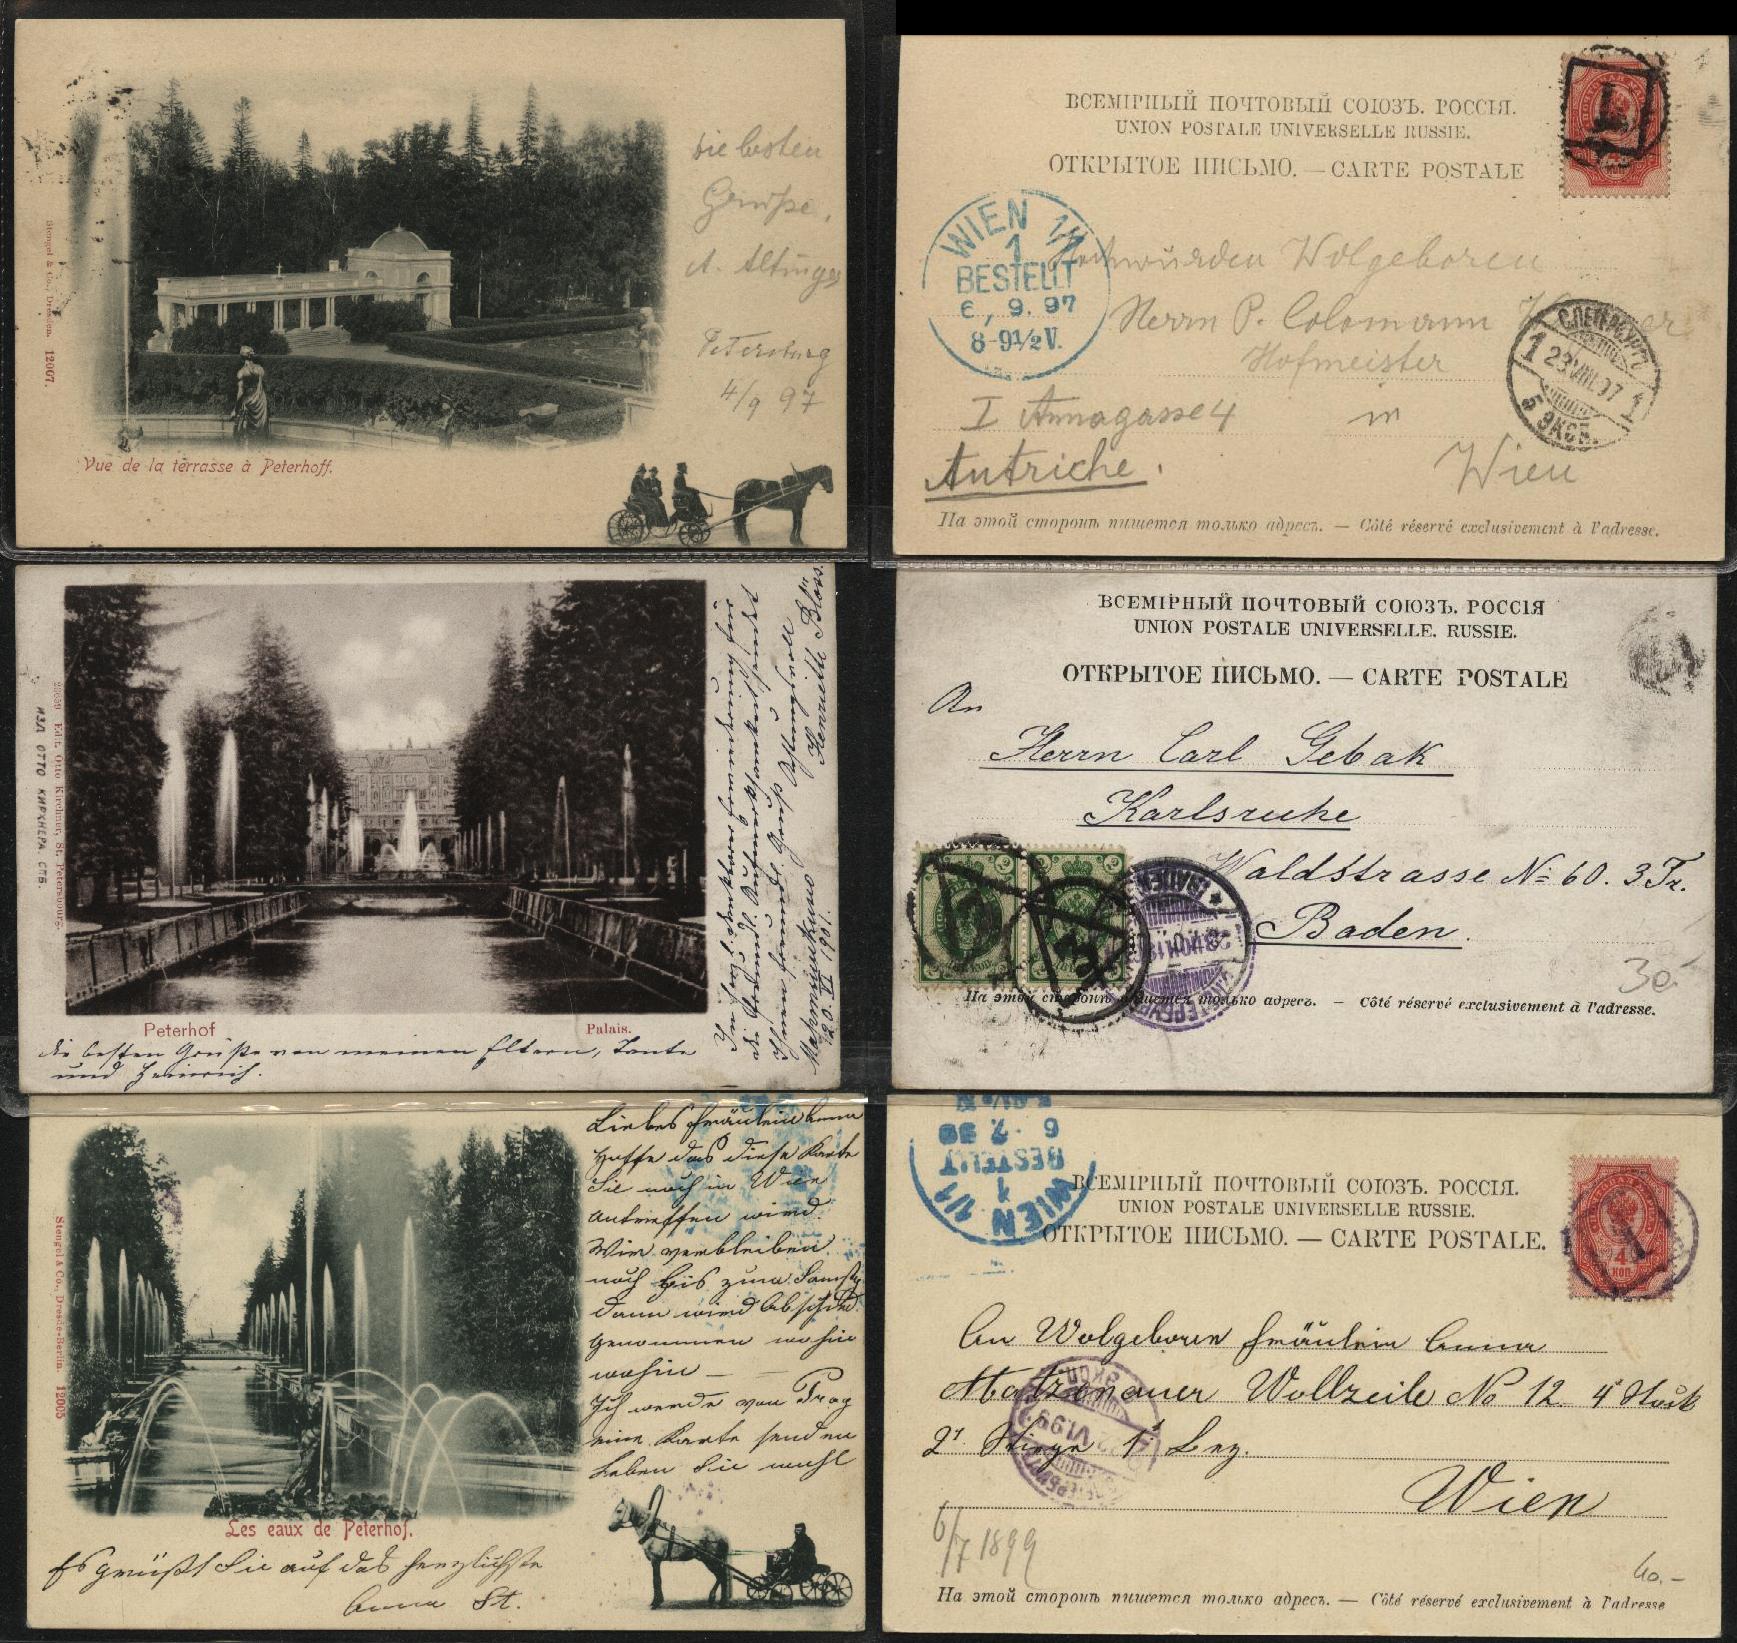 die besten
Grüße,
A. Altinger
Petersburg
4/9 97
Stengel & Co., Dresden. 12007.
Vue de la terrasse à Peterhoff.
ВСЕМІРНЫЙ ПОЧТОВЫЙ СОЮЗЪ. РОССІЯ.
UNION POSTALE UNIVERSELLE RUSSIE.
ОТКРЫТОЕ ПИСЬМО. — CARTE POSTALE
WIEN 1/1
1
BESTELLT
6. 9. 97
8-9½V.
Hochwürden Wolgeboren
Herrn P. Colomann
Hofmeister
I Annagasse 4 in
Wien
Autriche.
С.ПЕТЕРБУРГЪ
1 23 VIII.97 1
5 ЭКСП.
На этой сторонѣ пишется только адресъ. — Côté réservé exclusivement à l'adresse.
Edit. Otto Kirchner, St. Petersbourg.
ИЗД ОТТО КИРХНЕРА СПБ.
Peterhof
Palais.
die besten Grüße von meinen Eltern, Tante
und Heinrich.
In
die
Ihnen freundl. Gruß
Henriette Blöss.
20. VI 1901.
ВСЕМІРНЫЙ ПОЧТОВЫЙ СОЮЗЪ. РОССІЯ
UNION POSTALE UNIVERSELLE. RUSSIE.
ОТКРЫТОЕ ПИСЬМО. — CARTE POSTALE
An
Herrn Carl Gebak
Karlsruhe
Waldstrasse № 60. 3 Tr.
Baden.
30
На этой сторонѣ пишется только адресъ. — Côté réservé exclusivement à l'adresse.
Stengel & Co., Dresde-Berlin. 12005
Liebes Fräulein Anna
Hoffe das diese Karte
Sie noch in Wien
antreffen wird.
Wir verbleiben
noch bis zum Samstg
dann wird Abschied
genommen wohin
wohin —
Ich werde von Prag
eine Karte senden
Leben Sie wohl
Les eaux de Peterhof.
Es grüßt Sie auf das herzlichste
Anna St.
WIEN 1/1
1
BESTELLT
6. 7. 99
ВСЕМІРНЫЙ ПОЧТОВЫЙ СОЮЗЪ. РОССІЯ.
UNION POSTALE UNIVERSELLE RUSSIE.
ОТКРЫТОЕ ПИСЬМО. — CARTE POSTALE.
4
КОП
An Wolgeboren Fräulein Anna
Matzenauer Wollzeile No 12 4 Stock
2 Stiege 1
Wien
6/7 1899
40.-
На этой сторонѣ пишется только адресъ. — Côté réservé exclusivement à l'adresse